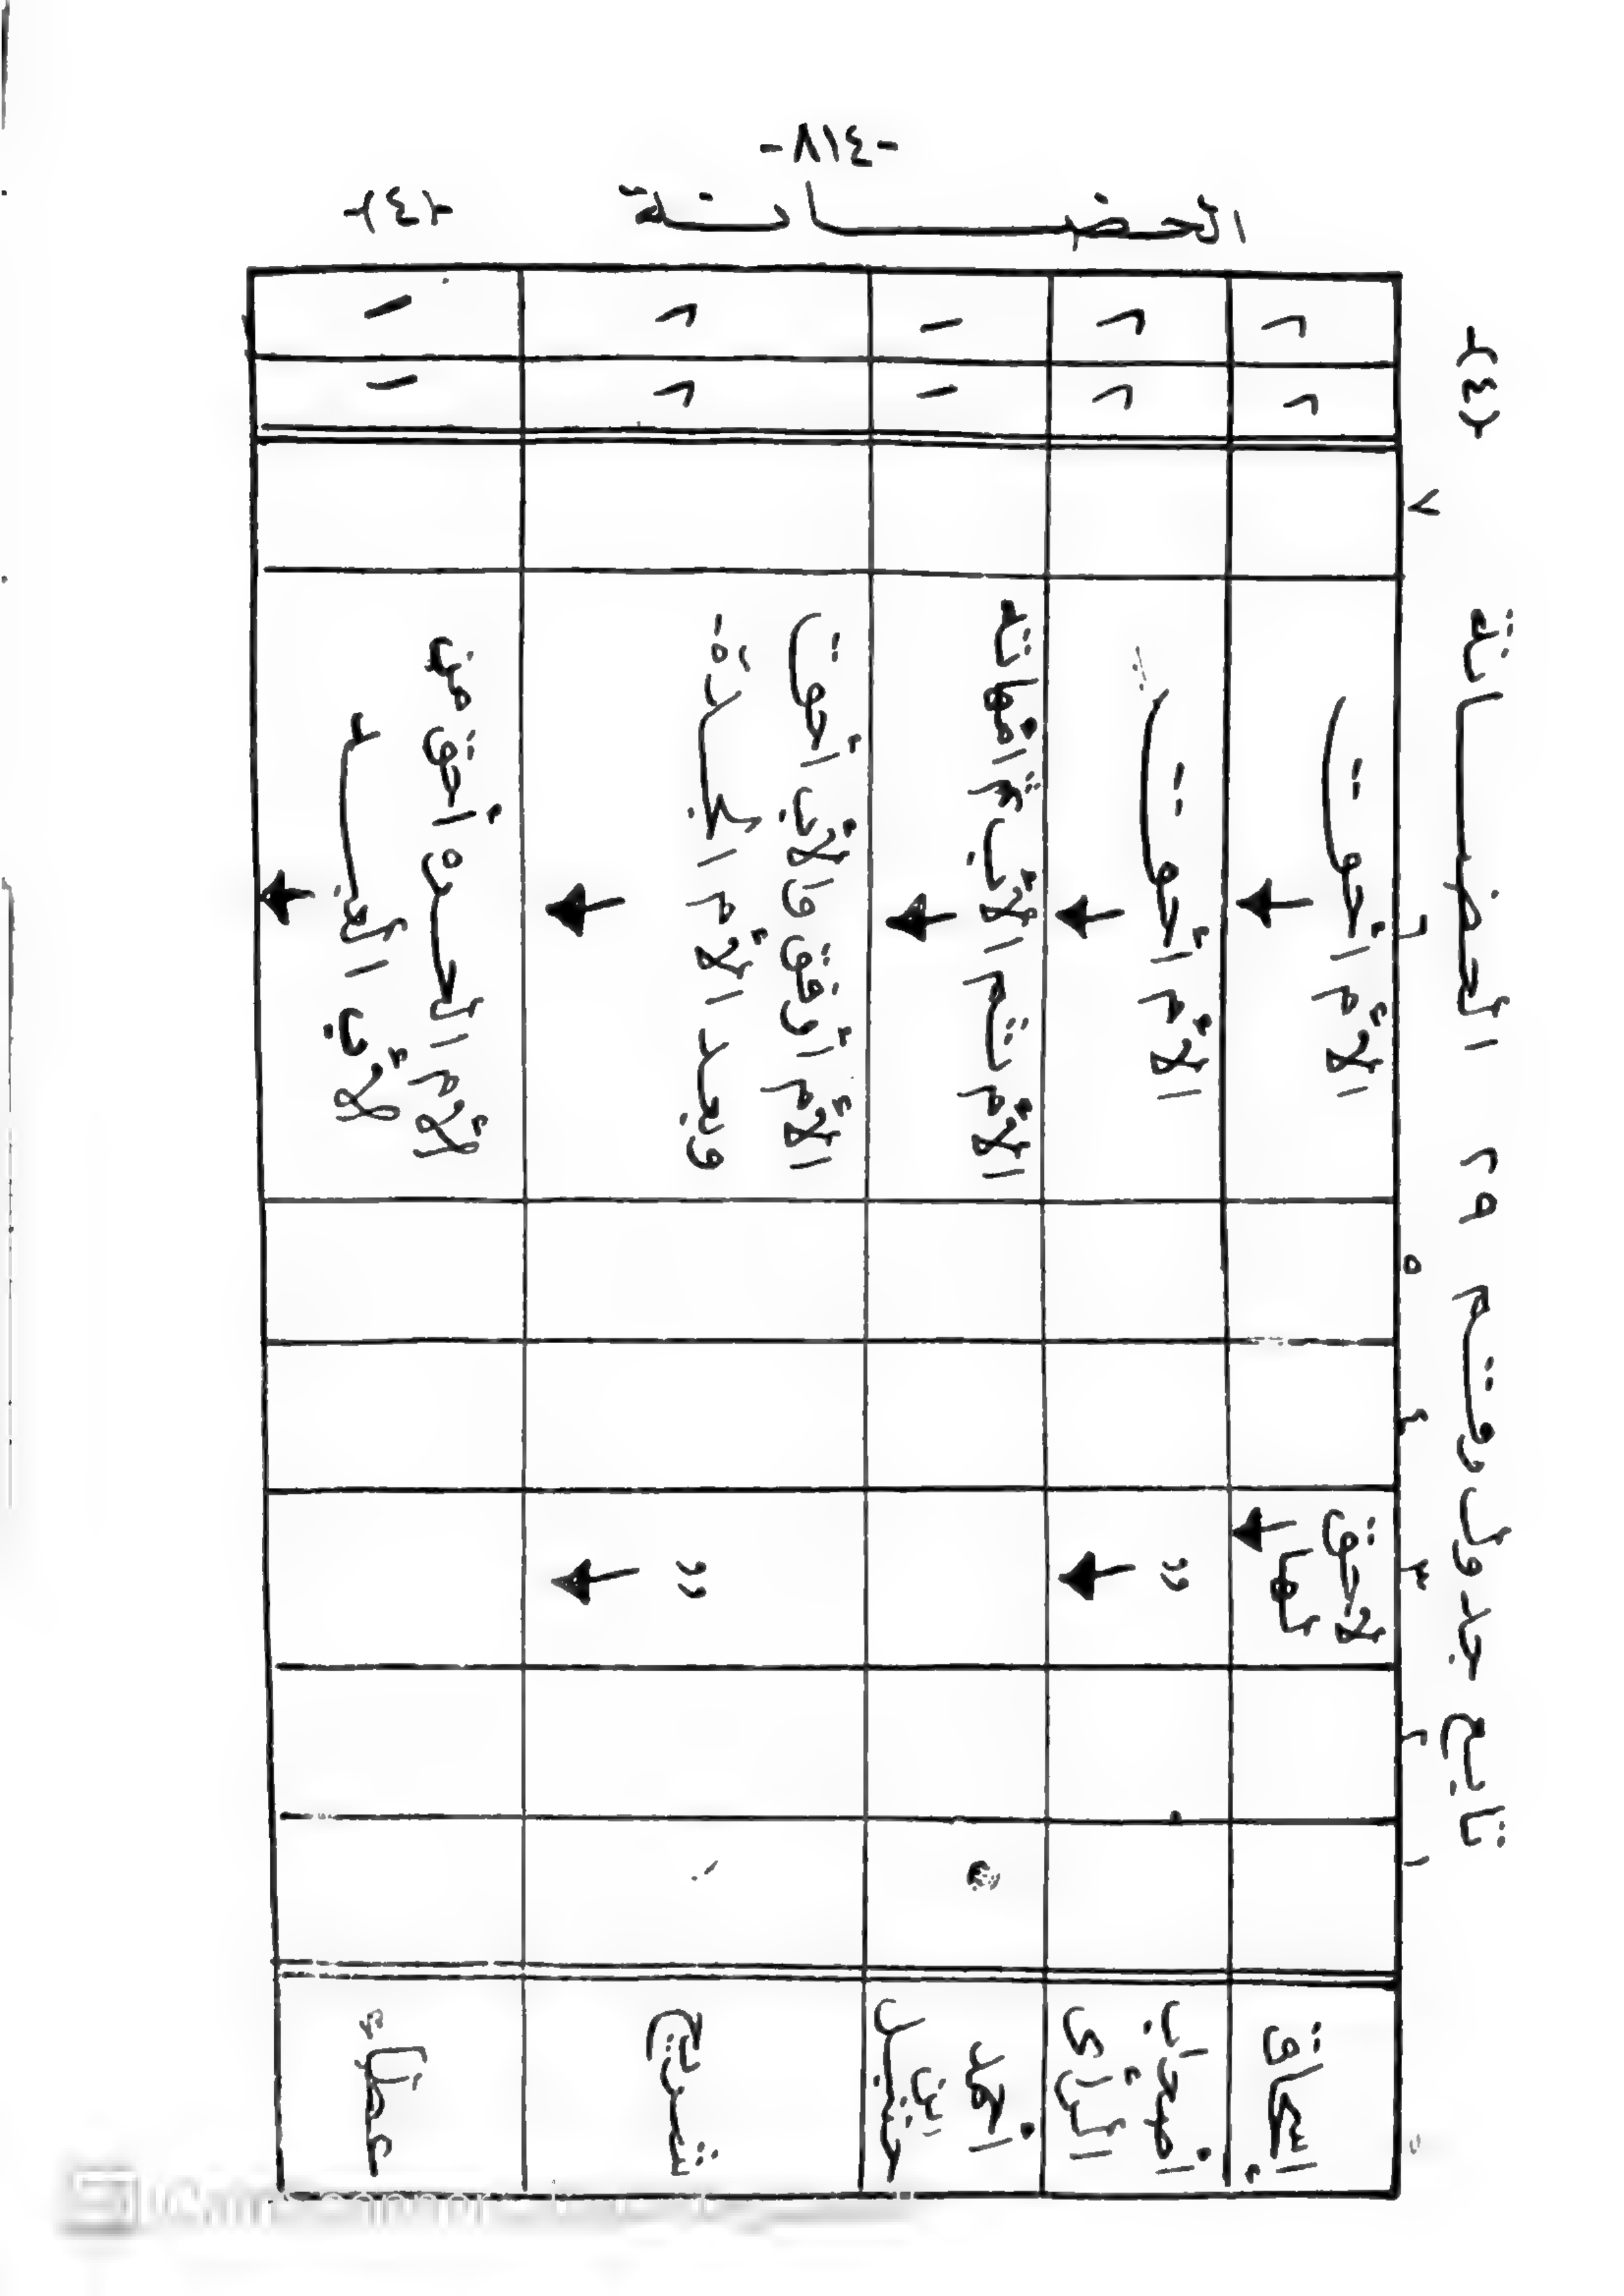 -٨١٤-
الحضـــانـة -(٤)-
تابع جدول رقم ٢٩ الحضـــانة -(٤)-
١ ٢ ٣ ٤ ٥ ٦ ٧
إسحاق لا حق لها الأمّ أحقّ ٢ ٢
أصحاب الرأى " الأمّ أحقّ ٢ ٢
أحمد بن حنبل الأمّ ثم الأب ثم أمهاته ١ ١
شريح " الأمّ أرفق والأب أحق
وبعد الأمّ الجدة ٢ ٢
عطاء الأمّ الحرة أحق من
الأب العبد ١ ١